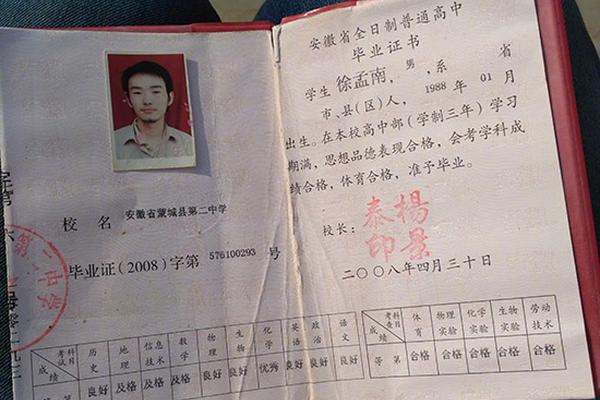 校名 安徽省蒙城县第二中学
毕业证(2008)字第 576100293 号
第二中学
考试科目 历史 地理 信息技术 数学 物理 生物 化学 英语 政治 语文
成绩 良好 及格 及格 及格 良好 良好 优秀 良好 良好 良好
安徽省全日制普通高中
毕业证书
学生 徐孟南，男，系 省
市、县(区)人，1988 年 01 月
出生。在本校高中部(学制三年)学习
期满，思想品德表现合格，会考学科成
绩合格，体育合格，准予毕业。
校长： 杨景泰印
二〇〇八年四月三十日
考查科目 体育 物理实验 化学实验 生物实验 劳动技术
等第 合格 合格 合格 合格 合格